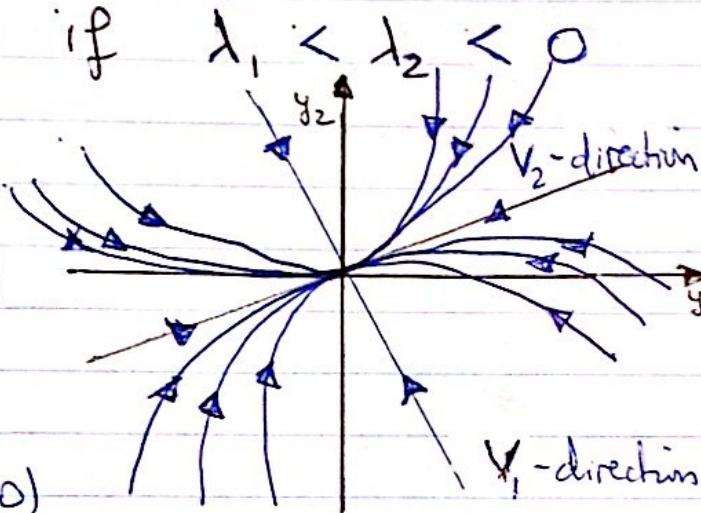 if λ₁ < λ₂ < 0
y₂
V₂-direction
y
V₁-direction
0)